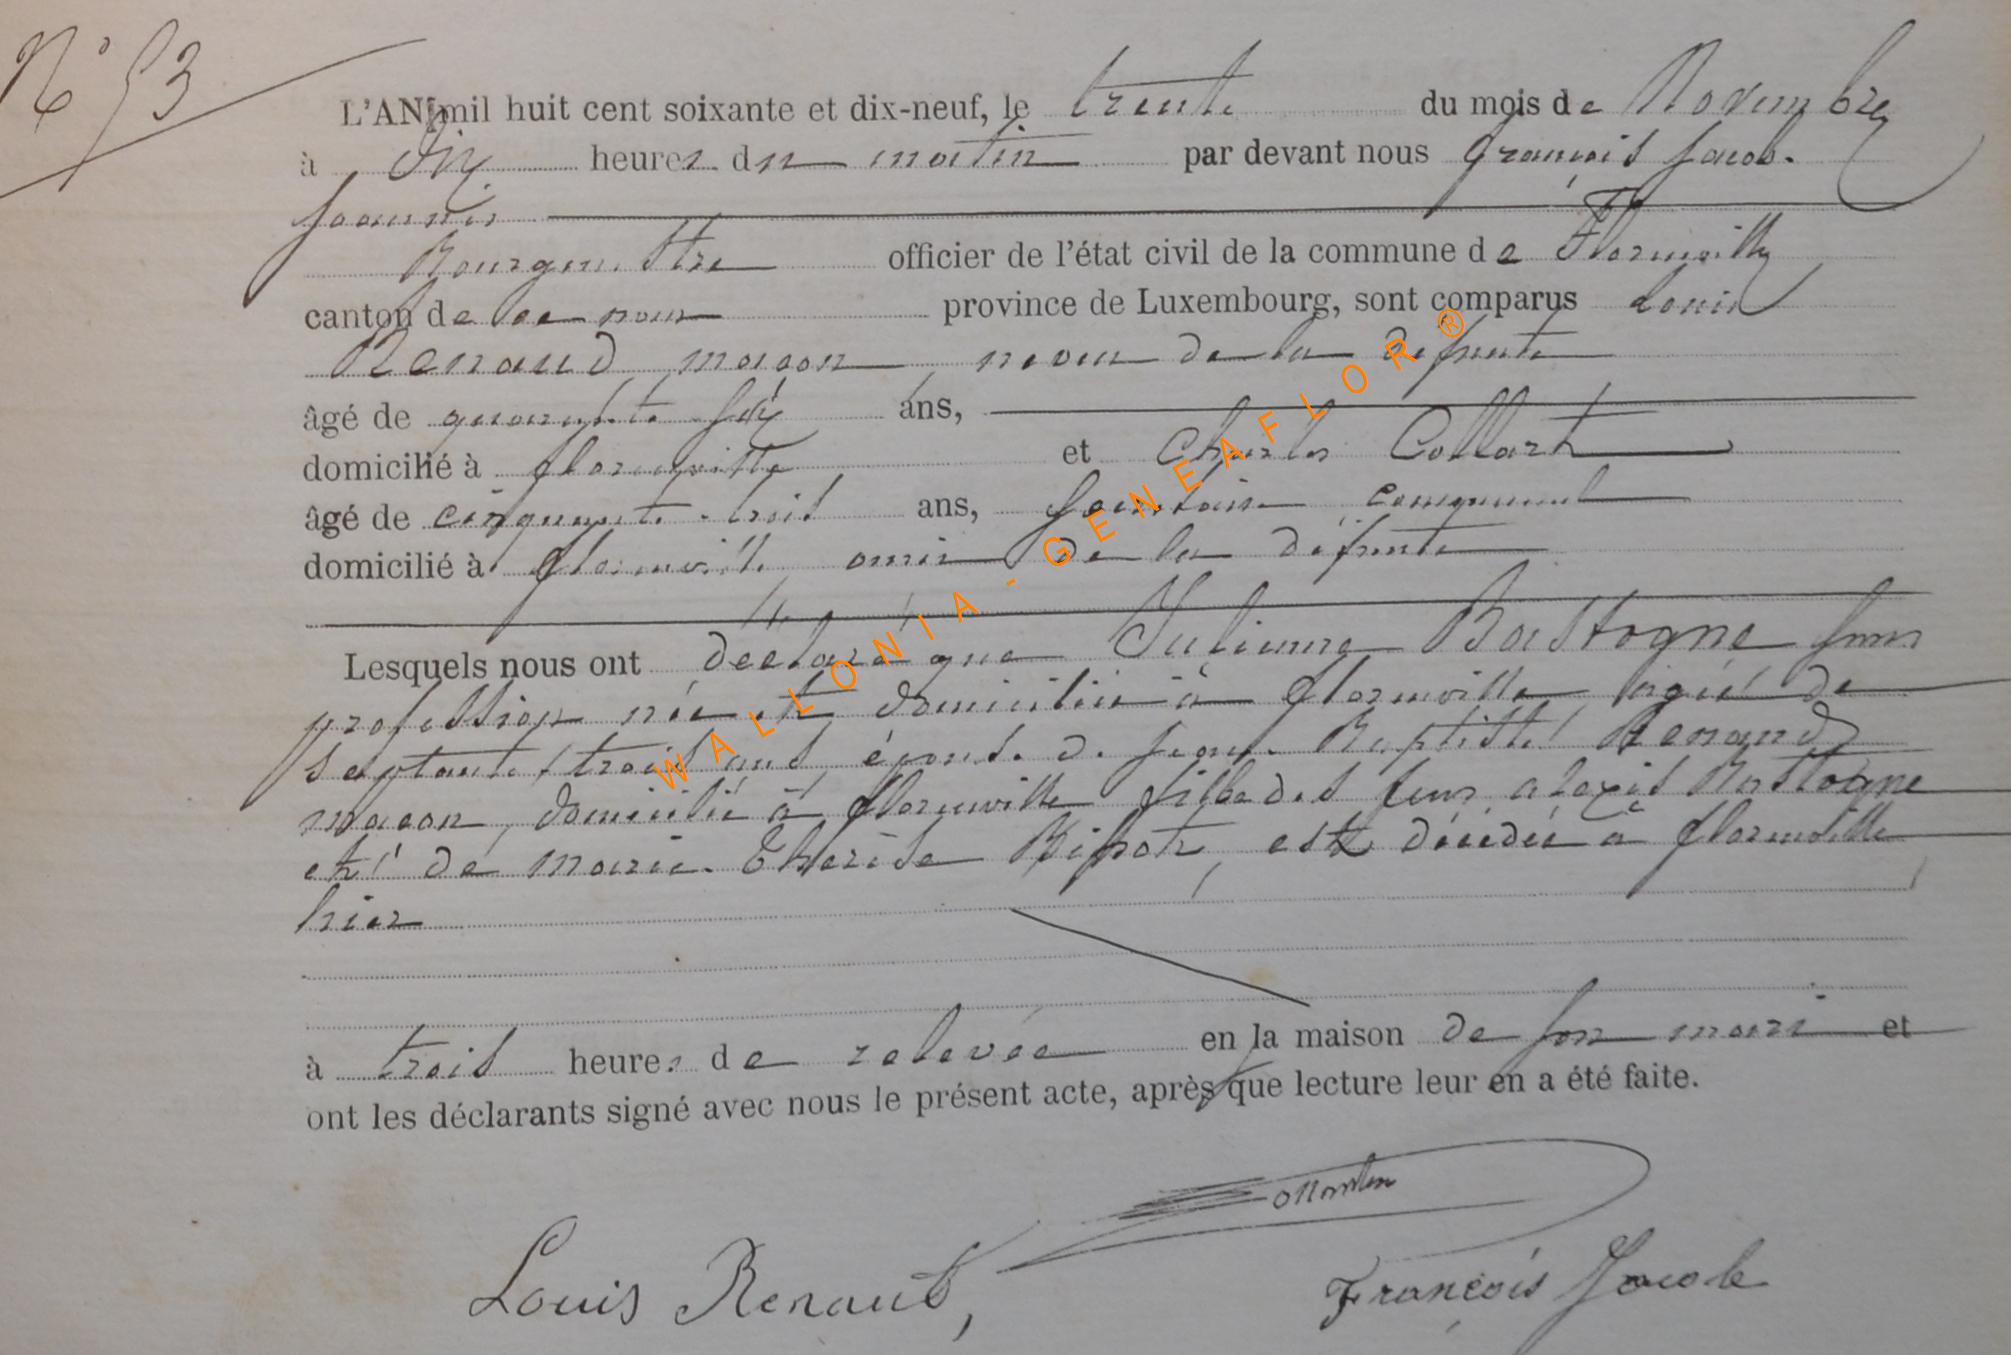 N° 53
L'AN mil huit cent soixante et dix-neuf, le trente du mois de Novembre
à dix heures du matin par devant nous François Jacob.
Jeannin
Bourgmestre officier de l'état civil de la commune de Florenville
canton de ce nom province de Luxembourg, sont comparus Louis
Renaud maçon, neveu de la défunte
âgé de quarante six ans,
domicilié à florenville et Charles Collart
âgé de cinquante-trois ans, communal
domicilié à florenville, ami de la défunte
Lesquels nous ont déclaré que Julienne Bastogne sans
profession née et domiciliée à florenville, âgée de
septante trois ans épouse de Jean-Baptiste Renaud
maçon, domicilié à florenville fille des feus alexis Bastogne
et de marie-Thérèse, est décédée à florenville
hier
à trois heures de relevée en la maison de son mari et
ont les déclarants signé avec nous le présent acte, après que lecture leur en a été faite.
Louis Renaud,
François Jacob
WALLONIA-GENEAFLOR®